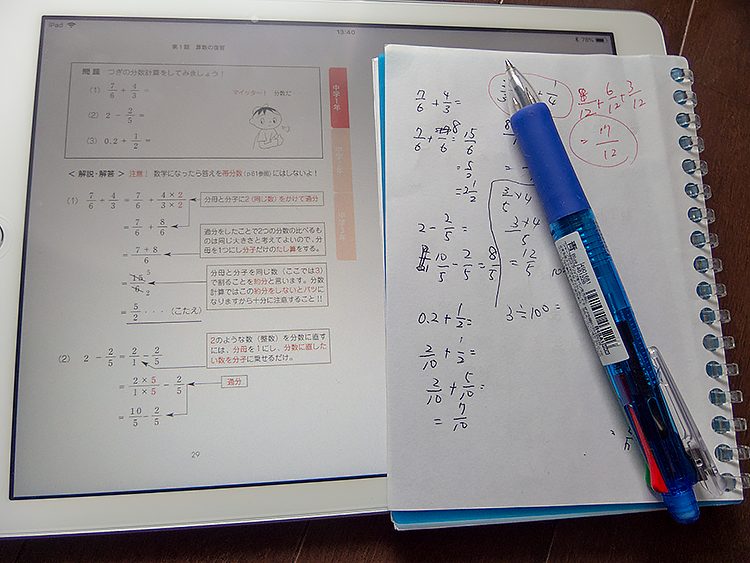 iPad
13:40
78%
第1回 算数の復習
問題 つぎの分数計算をしてみましょう！
(1) 7/6 + 4/3 =
(2) 2 − 2/5 =
(3) 0.2 + 1/2 =
マイッター！ 分数だ
中学1年
中学2年
中学3年
＜解説・解答＞ 注意！ 数学になったら答えを帯分数 (p61参照) にはしないよ！
(1) 7/6 + 4/3 = 7/6 + 4×2/3×2
分母と分子に2（同じ数）をかけて通分
= 7/6 + 8/6
= 7+8/6
通分をしたことで2つの分数の比べよ
ものは同じ大きさと考えてよいので、分
母を1つにし分子だけのたし算をする。
= 15/6 5/2
分母と分子を同じ数（ここでは3）
で割ることを約分と言います。分数
計算ではこの約分をしないとバツに
なりますから十分に注意すること!!
= 5/2 ・・・（こたえ）
(2) 2 − 2/5 = 2/1 − 2/5
2のような数（整数）を分数に直す
には、分母を1にし、分数に直した
い数を分子に乗せるだけ。
= 2×5/1×5 − 2/5
通分
= 10/5 − 2/5
29
7/6 + 4/3 =
7/6 + 8/6 = 15/6
= 5/2
= 2 1/2
2 − 2/5
10/5 − 2/5 = 8/5
0.2 + 1/2 =
2/10 + 1/2 =
2/10 + 5/10 =
= 7/10
+ 1/4
3/5 × 4
3×4/5
= 12/5
3 ÷ 100 =
8/12 + 6/12 + 3/12
= 17/12